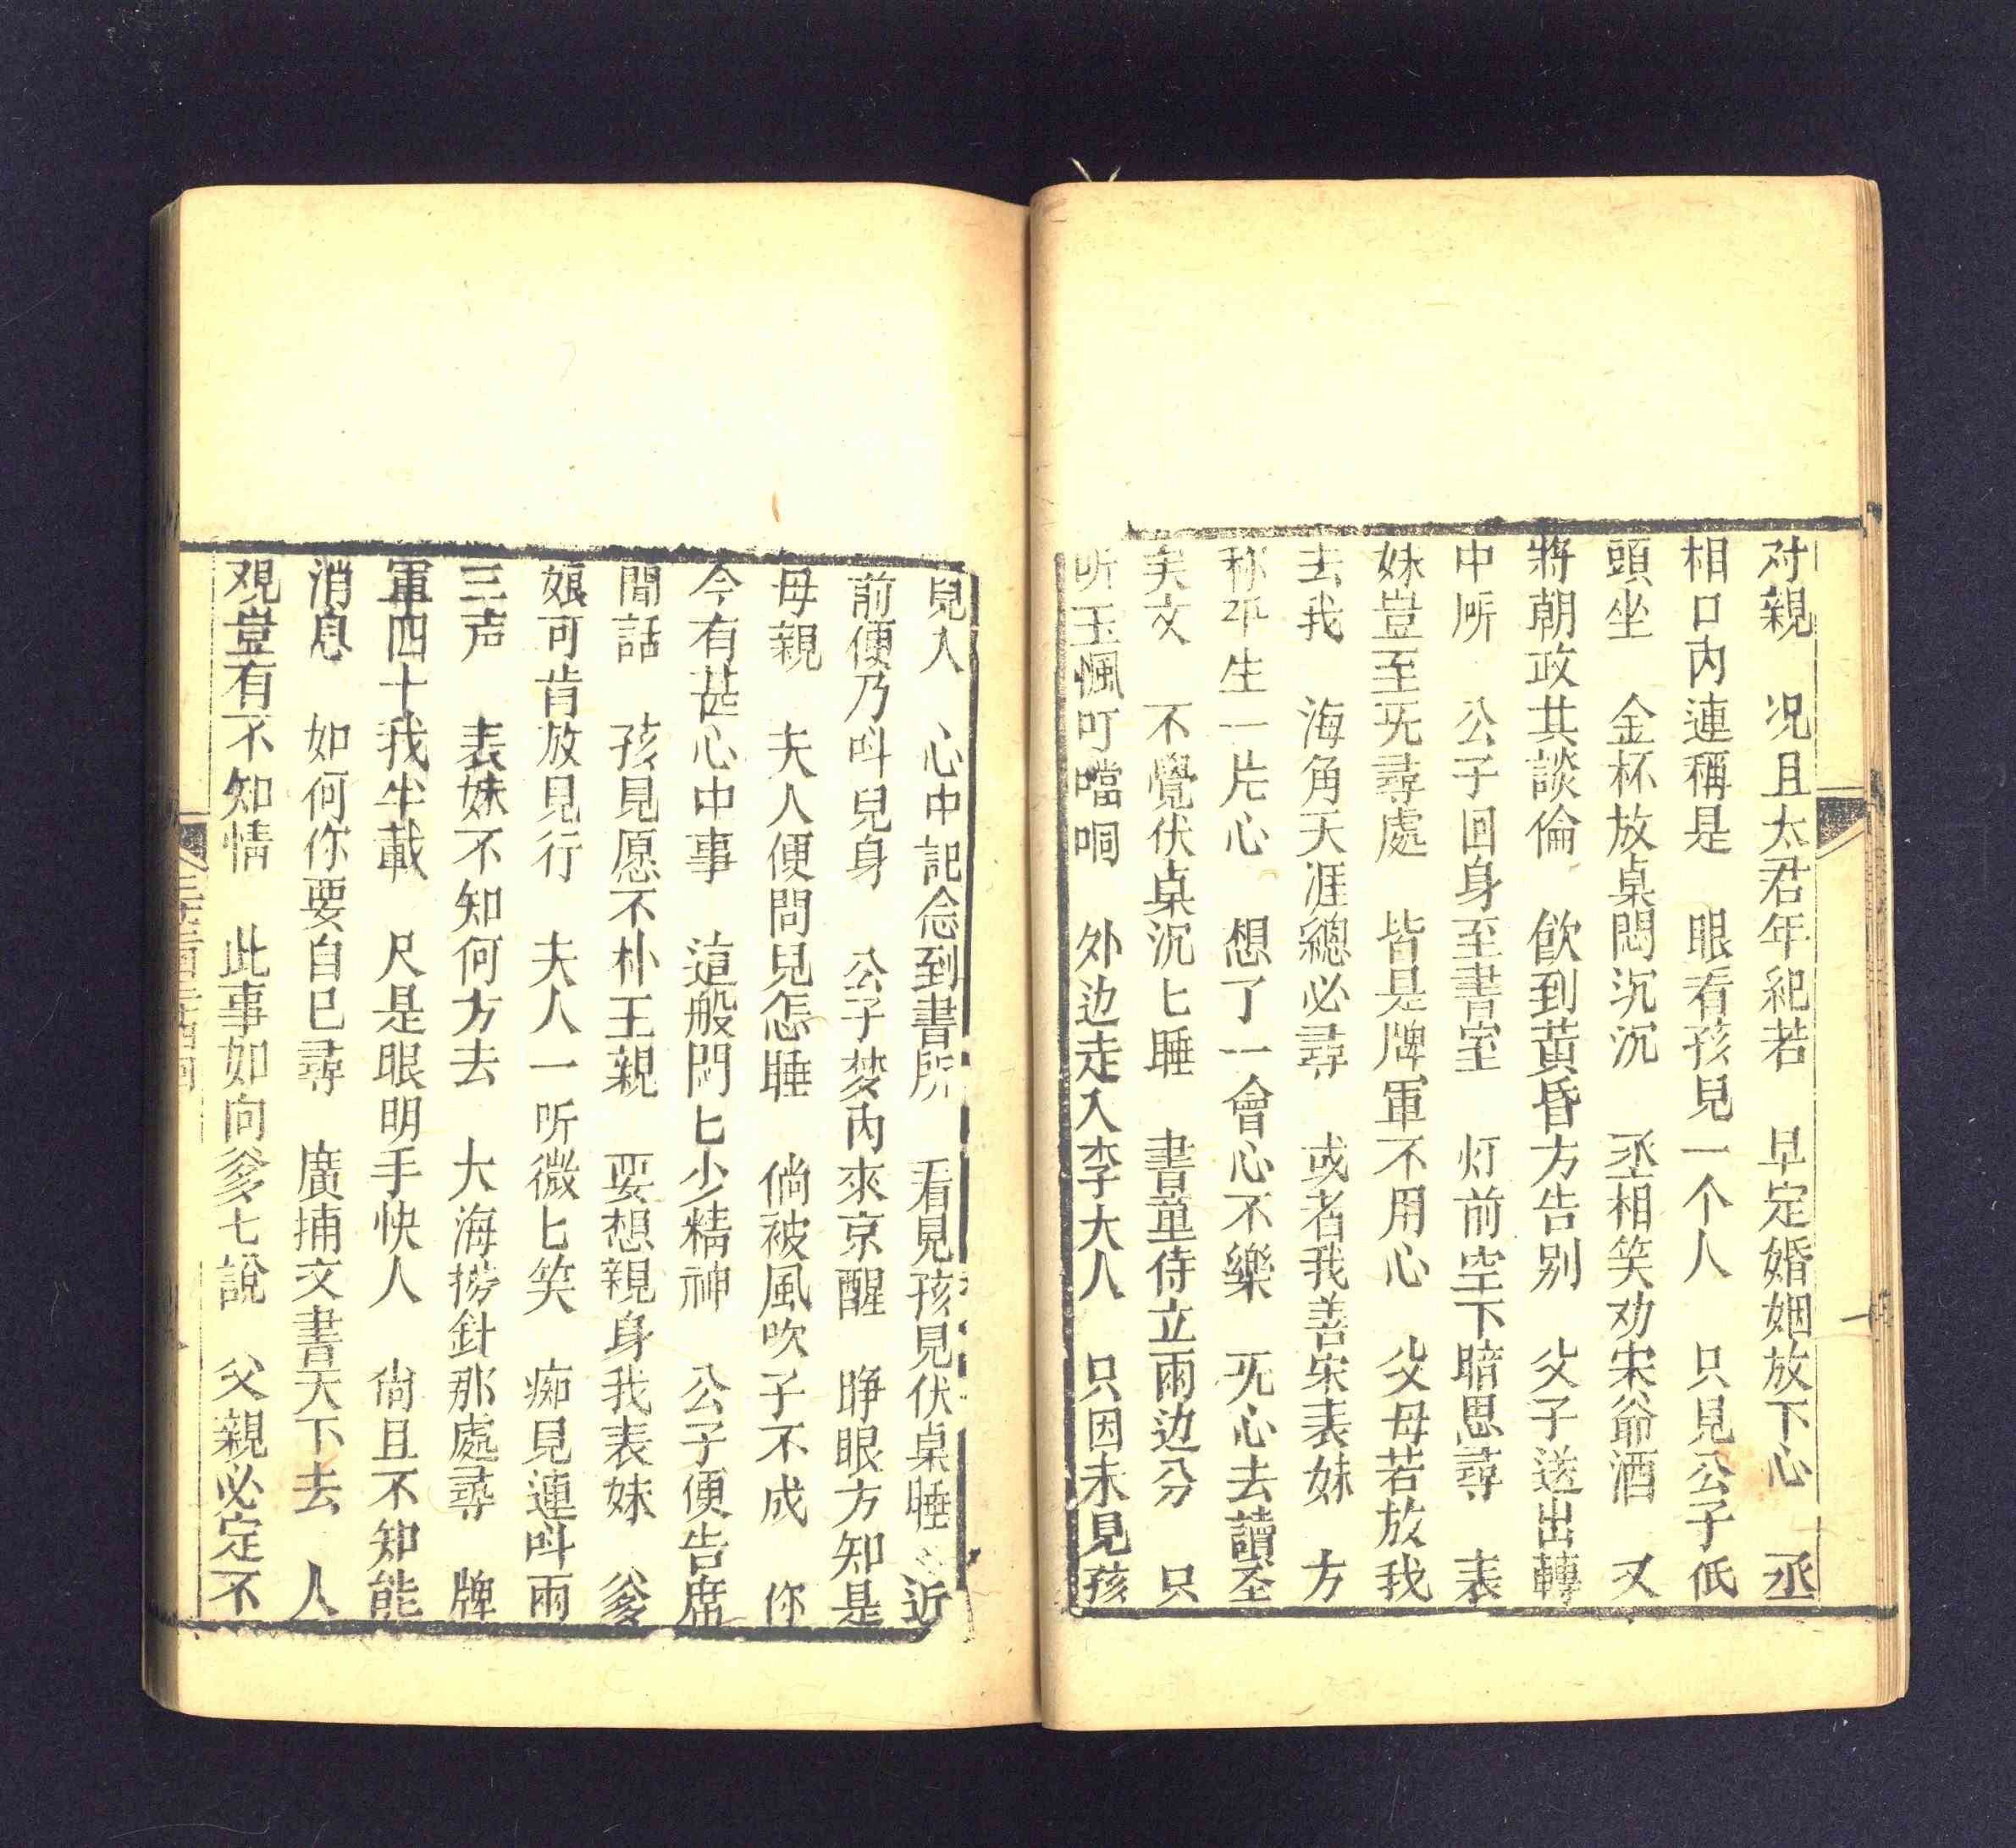 对親　况且太君年紀若　早定婚姻放下心　丞
相口内連稱是　眼看孩兒一个人　只見公子低
頭坐　金杯放桌悶沉沉　丞相笑劝宋爺酒　又
將朝政共談倫　飲到黄昏方告别　父子送出轉
中所　公子回身至書室　灯前空下暗思尋　表
妹豈至旡尋處　皆是牌軍不用心　父母若放我
去我　海角天涯總必尋　或者我善宋表妹　方
称平生一片心　想了一會心不樂　旡心去讀圣
矣文　不覺伏桌沉匕睡　書童侍立兩边分　只
听玉珮叮噹响　外边走入李大人　只因未見孩
兒人　心中記念到書所　看見孩見伏桌睡　〻近
前便乃呌兒身　公子梦内來京醒　睁眼方知是
母親　夫人便問兒怎睡　倘被風吹子不成　你
今有甚心中事　這般悶匕少精神　公子便告席
間話　孩見愿不朴王親　要想親身我表妹　爹
娘可肯放見行　夫人一听微匕笑　痴見連呌兩
三声　表妹不知何方去　大海捞針那處尋　牌
軍四十我半載　尺是眼明手快人　尚且不知能
消息　如何你要自已尋　廣捕文書天下去　人
观豈有不知情　此事如向爹七說　父親必定不